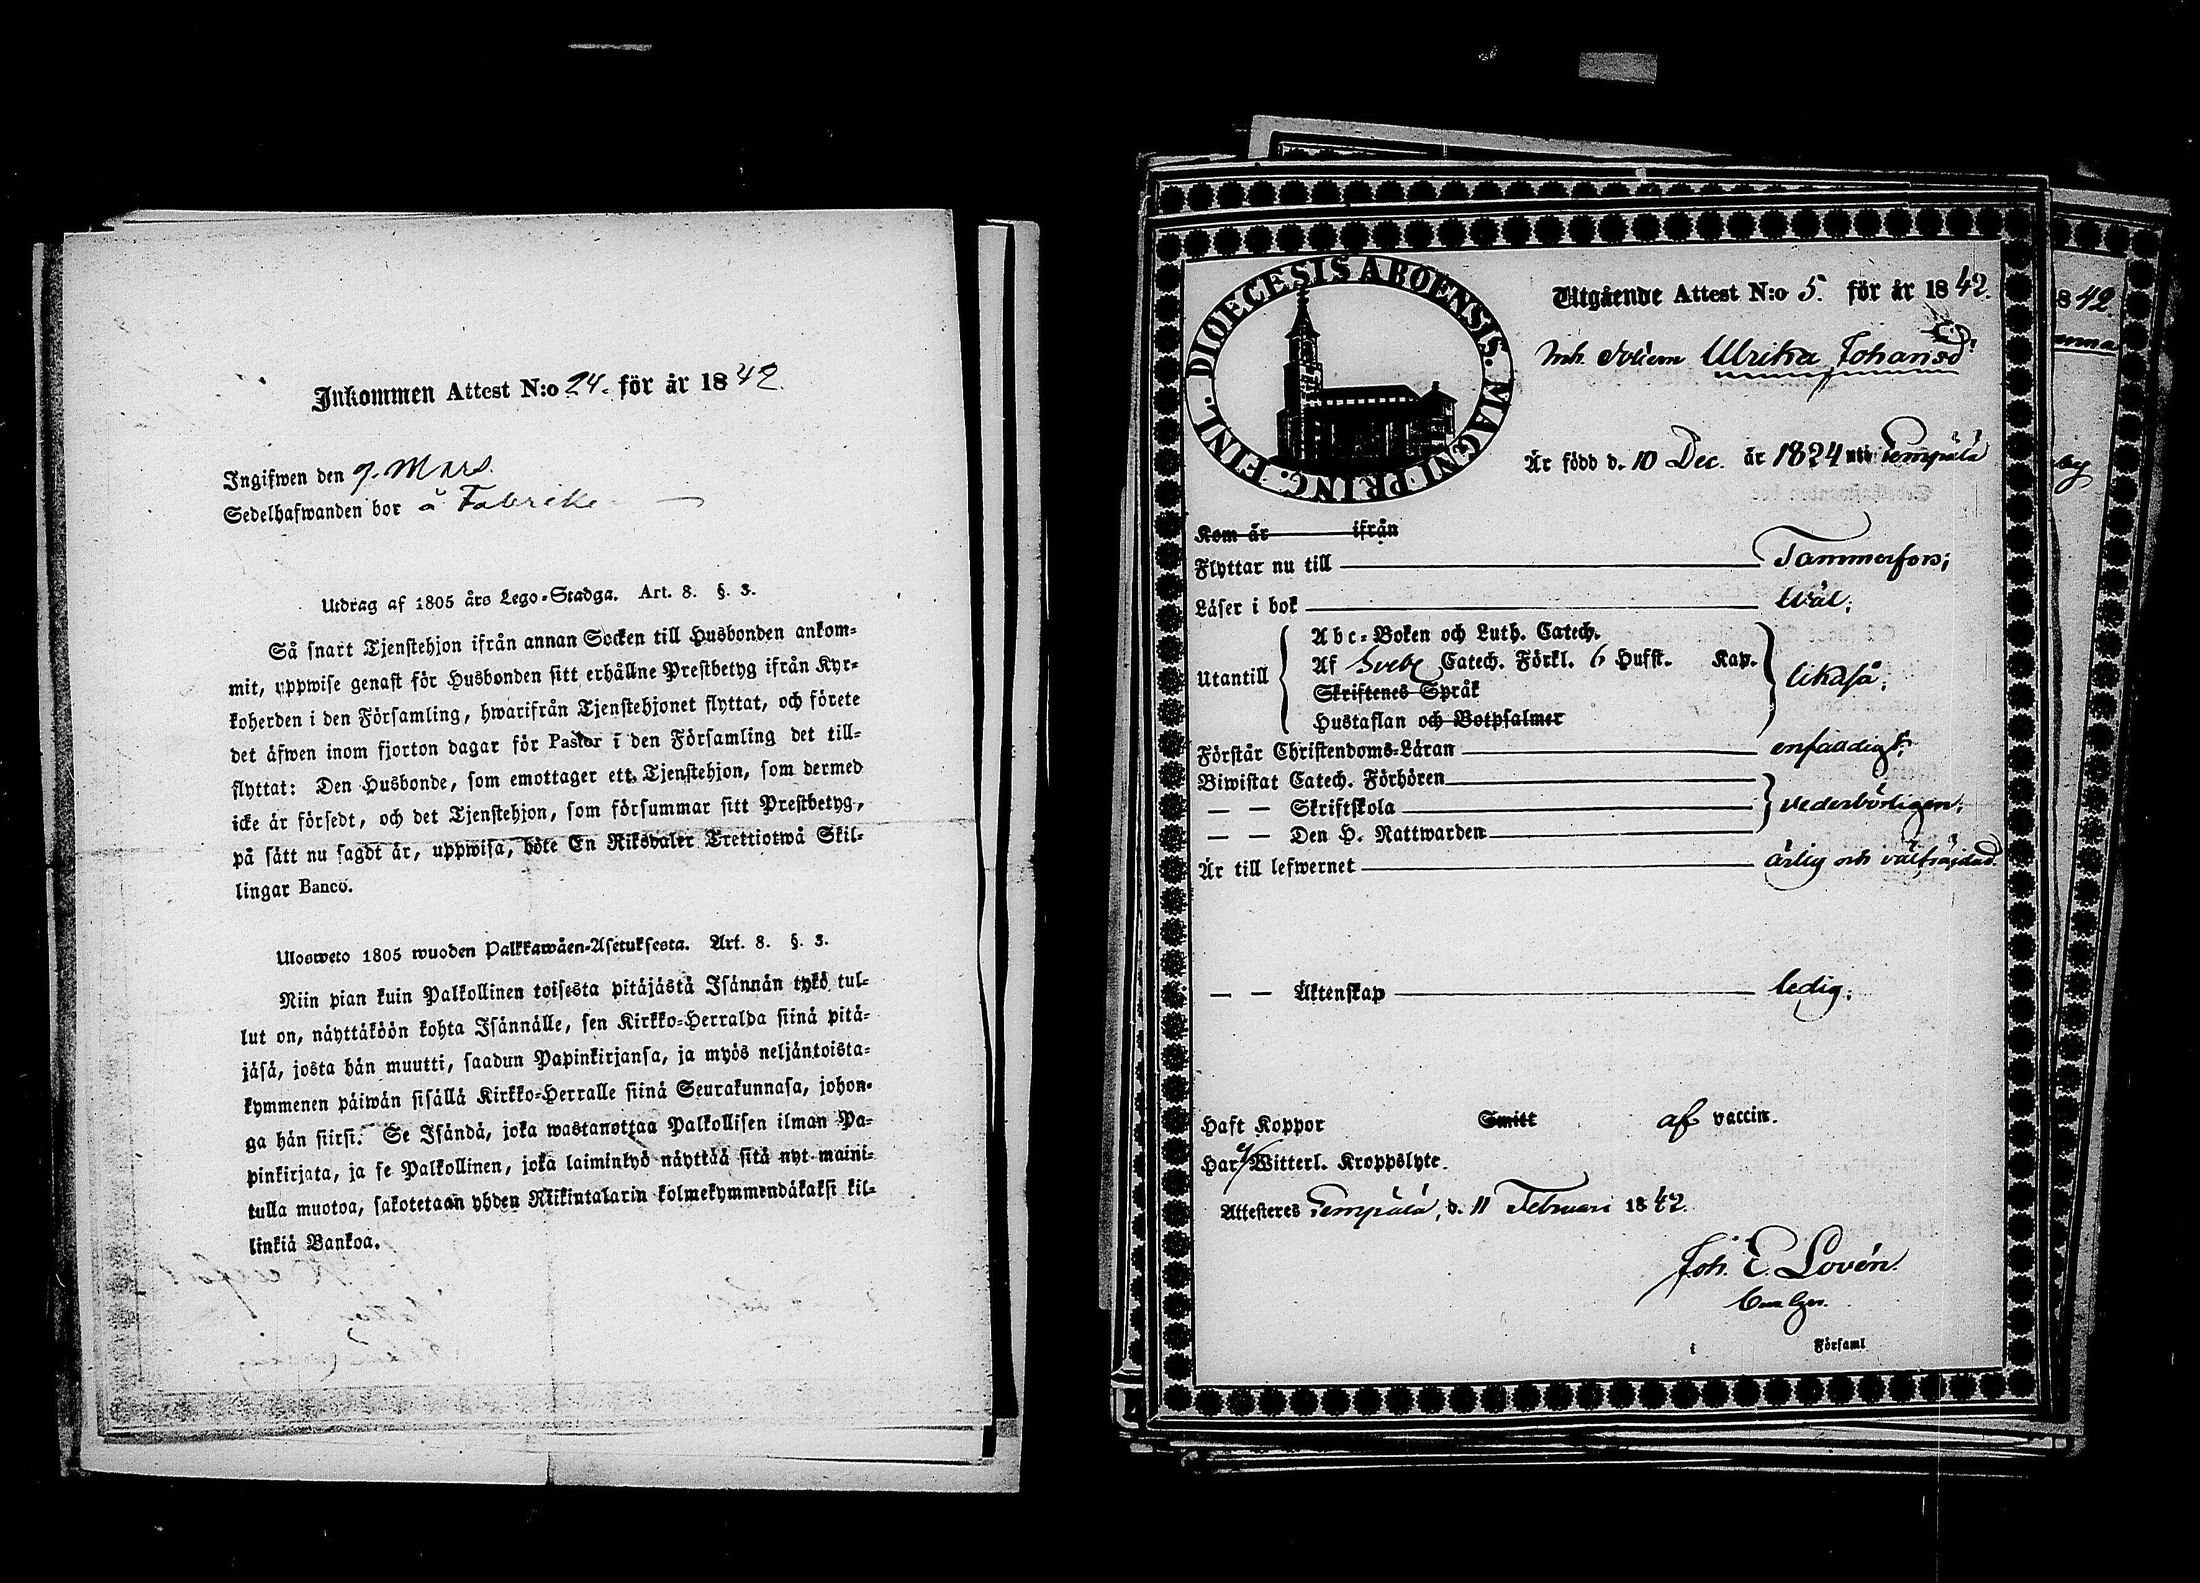 Inkommen Attest N:o 24. för år 1842.
Ingifwen den 9. Mars.
Sedelhafwanden bor å Fabriken
Utdrag af 1805 års Lego-Stadga. Art. 8. §. 3.
Så snart Tjenstehjon ifrån annan Socken till Husbonden ankom-
mit, uppwise genast för Husbonden sitt erhållne Prestbetyg ifrån Kyr-
koherden i den Församling, hwarifrån Tjenstehjonet flyttat, och förete
det äfwen inom fjorton dagar för Pastor i den Församling det till-
flyttat: Den Husbonde, som emottager ett Tjenstehjon, som dermed
icke är försedt, och det Tjenstehjon, som försummar sitt Prestbetyg,
på sätt nu sagdt är, uppwisa, böte En Riksdaler Trettiotwå Skil-
lingar Banco.
Ulosweto 1805 wuoden Palkkawäen-Asetuksesta. Art. 8. §. 3.
Niin pian kuin Palkollinen toisesta pitäjästä Isännän tykö tul-
lut on, näyttäköön kohta Isännälle, sen Kirkko-Herralda siinä pitä-
jäsä, josta hän muutti, saadun Papinkirjansa, ja myös neljäntoista-
kymmenen päiwän sisällä Kirkko-Herralle siinä Seurakunnasa, johon-
ga hän siirsi. Se Isändä, joka wastanottaa Palkollisen ilman Pa-
pinkirjata, ja se Palkollinen, joka laiminlyö näyttää sitä nyt maini-
tulla muotoa, sakotetaan yhden Riikintalarin kolmekymmendäkaksi kil-
linkiä Bankoa.
DIOECESIS ABOENSIS. MAGNI PRINC. FINL.
Utgående Attest N:o 5. för år 1842.
Inh. Ulrika Johansd:r
Är född d. 10 Dec. år 1824 uti Lempälä
Kom år ifrån
Flyttar nu till Tammerfors;
Läser i bok wäl;
Utantill
Abc-Boken och Luth. Catech.
Af Svebe Catech. Förkl. 6 Hufst. Kap.
Skriftenes Språk
Hustaflan och Botpsalmer
likaså;
Förstår Christendoms-Läran enfaldigt;
Biwistat Catech. Förhören
— — Skriftskola
— — Den H. Nattwarden
vederbörligen;
Är till lefwernet ärlig och välfräjdad.
— — Äktenskap ledig;
Haft Koppor Smitt af vaccin.
Har ej Witterl. Kroppslyte.
Attesteres Lempälä, d. 11 Februari 1842.
Joh. E. Lovén.
i Församl
1842.